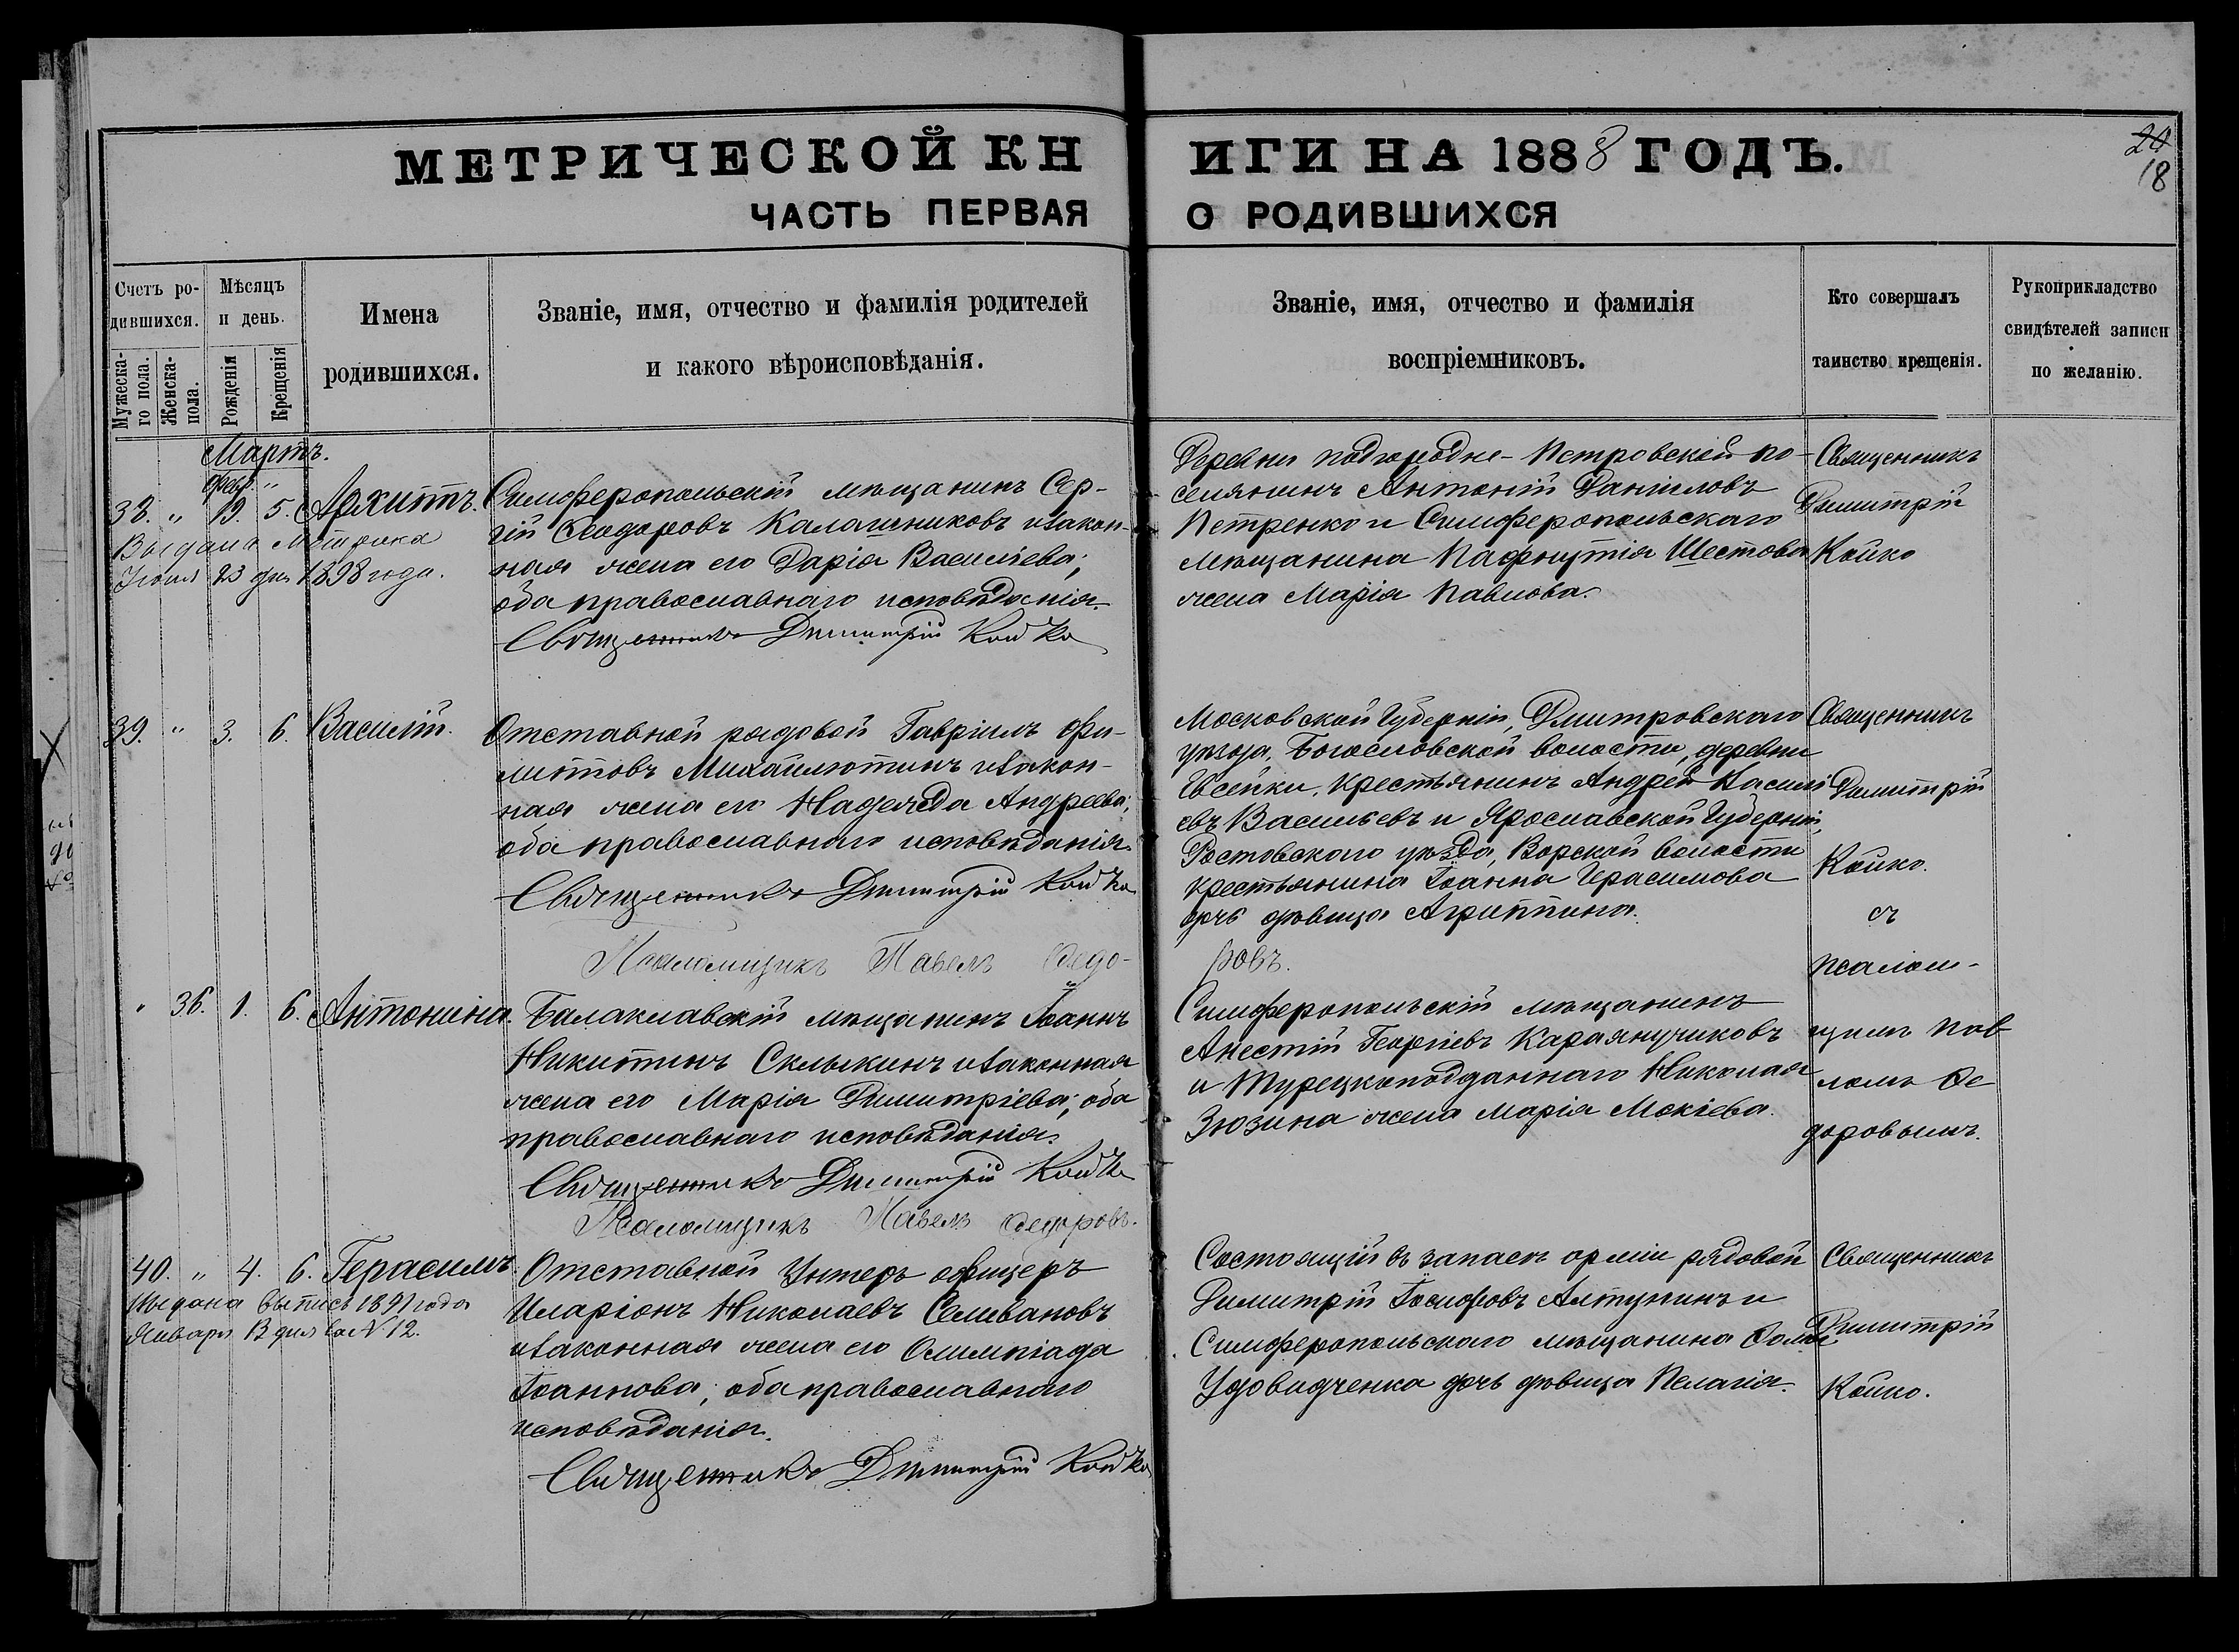 МЕТРИЧЕСКОЙ КНИГИ НА 1888 ГОДЪ.
24
18
ЧАСТЬ ПЕРВАЯ О РОДИВШИХСЯ
Счетъ родившихся.
Мужескаго пола.
Женска- пола.
Мѣсяцъ и день.
Рожденія
Крещенія
Имена
родившихся.
Званіе, имя, отчество и фамилія родителей
и какого вѣроисповѣданія.
Званіе, имя, отчество и фамилія
воспріемниковъ.
Кто совершалъ
таинство крещенія.
Рукоприкладство
свидѣтелей записи
по желанію.
Мартъ.
Февр. "
38. " 19. 5. Архипъ.
Выдана метрика
Іюня 23 дня 1898 года.
Симферопольскій мѣщанинъ Сер-
гій Ѳеодоровъ Калашниковъ и закон-
ная жена его Дарія Васильева;
оба православнаго исповѣданія.
Священникъ Димитрій Койко
Деревни Подгородне-Петровской по-
селянинъ Антоній Даніиловъ
Петренко и Симферопольскаго
мѣщанина Пафнутія Шестова
жена Марія Павлова.
Священникъ
Димитрій
Койко
39. " 3. 6. Василій.
Отставной рядовой Гавріилъ Фи-
липповъ Михайлютинъ и закон-
ная жена его Надежда Андреева;
оба православнаго исповѣданія.
Священникъ Димитрій Койко
Псаломщикъ Павелъ Ѳедо-
ровъ.
Московской Губерніи, Дмитровскаго
уѣзда, Богословской волости, деревни
крестьянинъ Андрей Васильевъ и Ярославской Губерніи,
Ростовскаго уѣзда, волости
крестьянина Іоанна Герасимова
дочь дѣвица Агриппина.
Священникъ
Димитрій
Койко.
съ
псалом-
щикъ Пав-
ломъ Ѳе-
доровымъ.
" 36. 1. 6. Антонина.
Балаклавскій мѣщанинъ Іоаннъ
Никитинъ Склыкинъ и законная
жена его Марія Димитріева; оба
православнаго исповѣданія.
Священникъ Димитрій Койко
Псаломщикъ Павелъ Ѳедоровъ.
Симферопольскій мѣщанинъ
Анестій Георгіевъ Караянучиковъ
и Турецкоподданнаго Николая
Зюзина жена Марія Мокіева.
40. " 4. 6. Герасимъ
Выдана выпись 1891 года
Января 13 дня за N 12.
Отставной Унтеръ офицеръ
Иларіонъ Николаевъ Селивановъ
и законная жена его Олимпіада
Іоаннова; оба православнаго
исповѣданія.
Священникъ Димитрій Койко
Состоящій въ запасѣ арміи рядовой
Димитрій Іосифовъ Алтунинъ и
Симферопольскаго мѣщанина Ѳомы
Удовидченка дочь дѣвица Пелагія.
Священникъ
Димитрій
Койко.